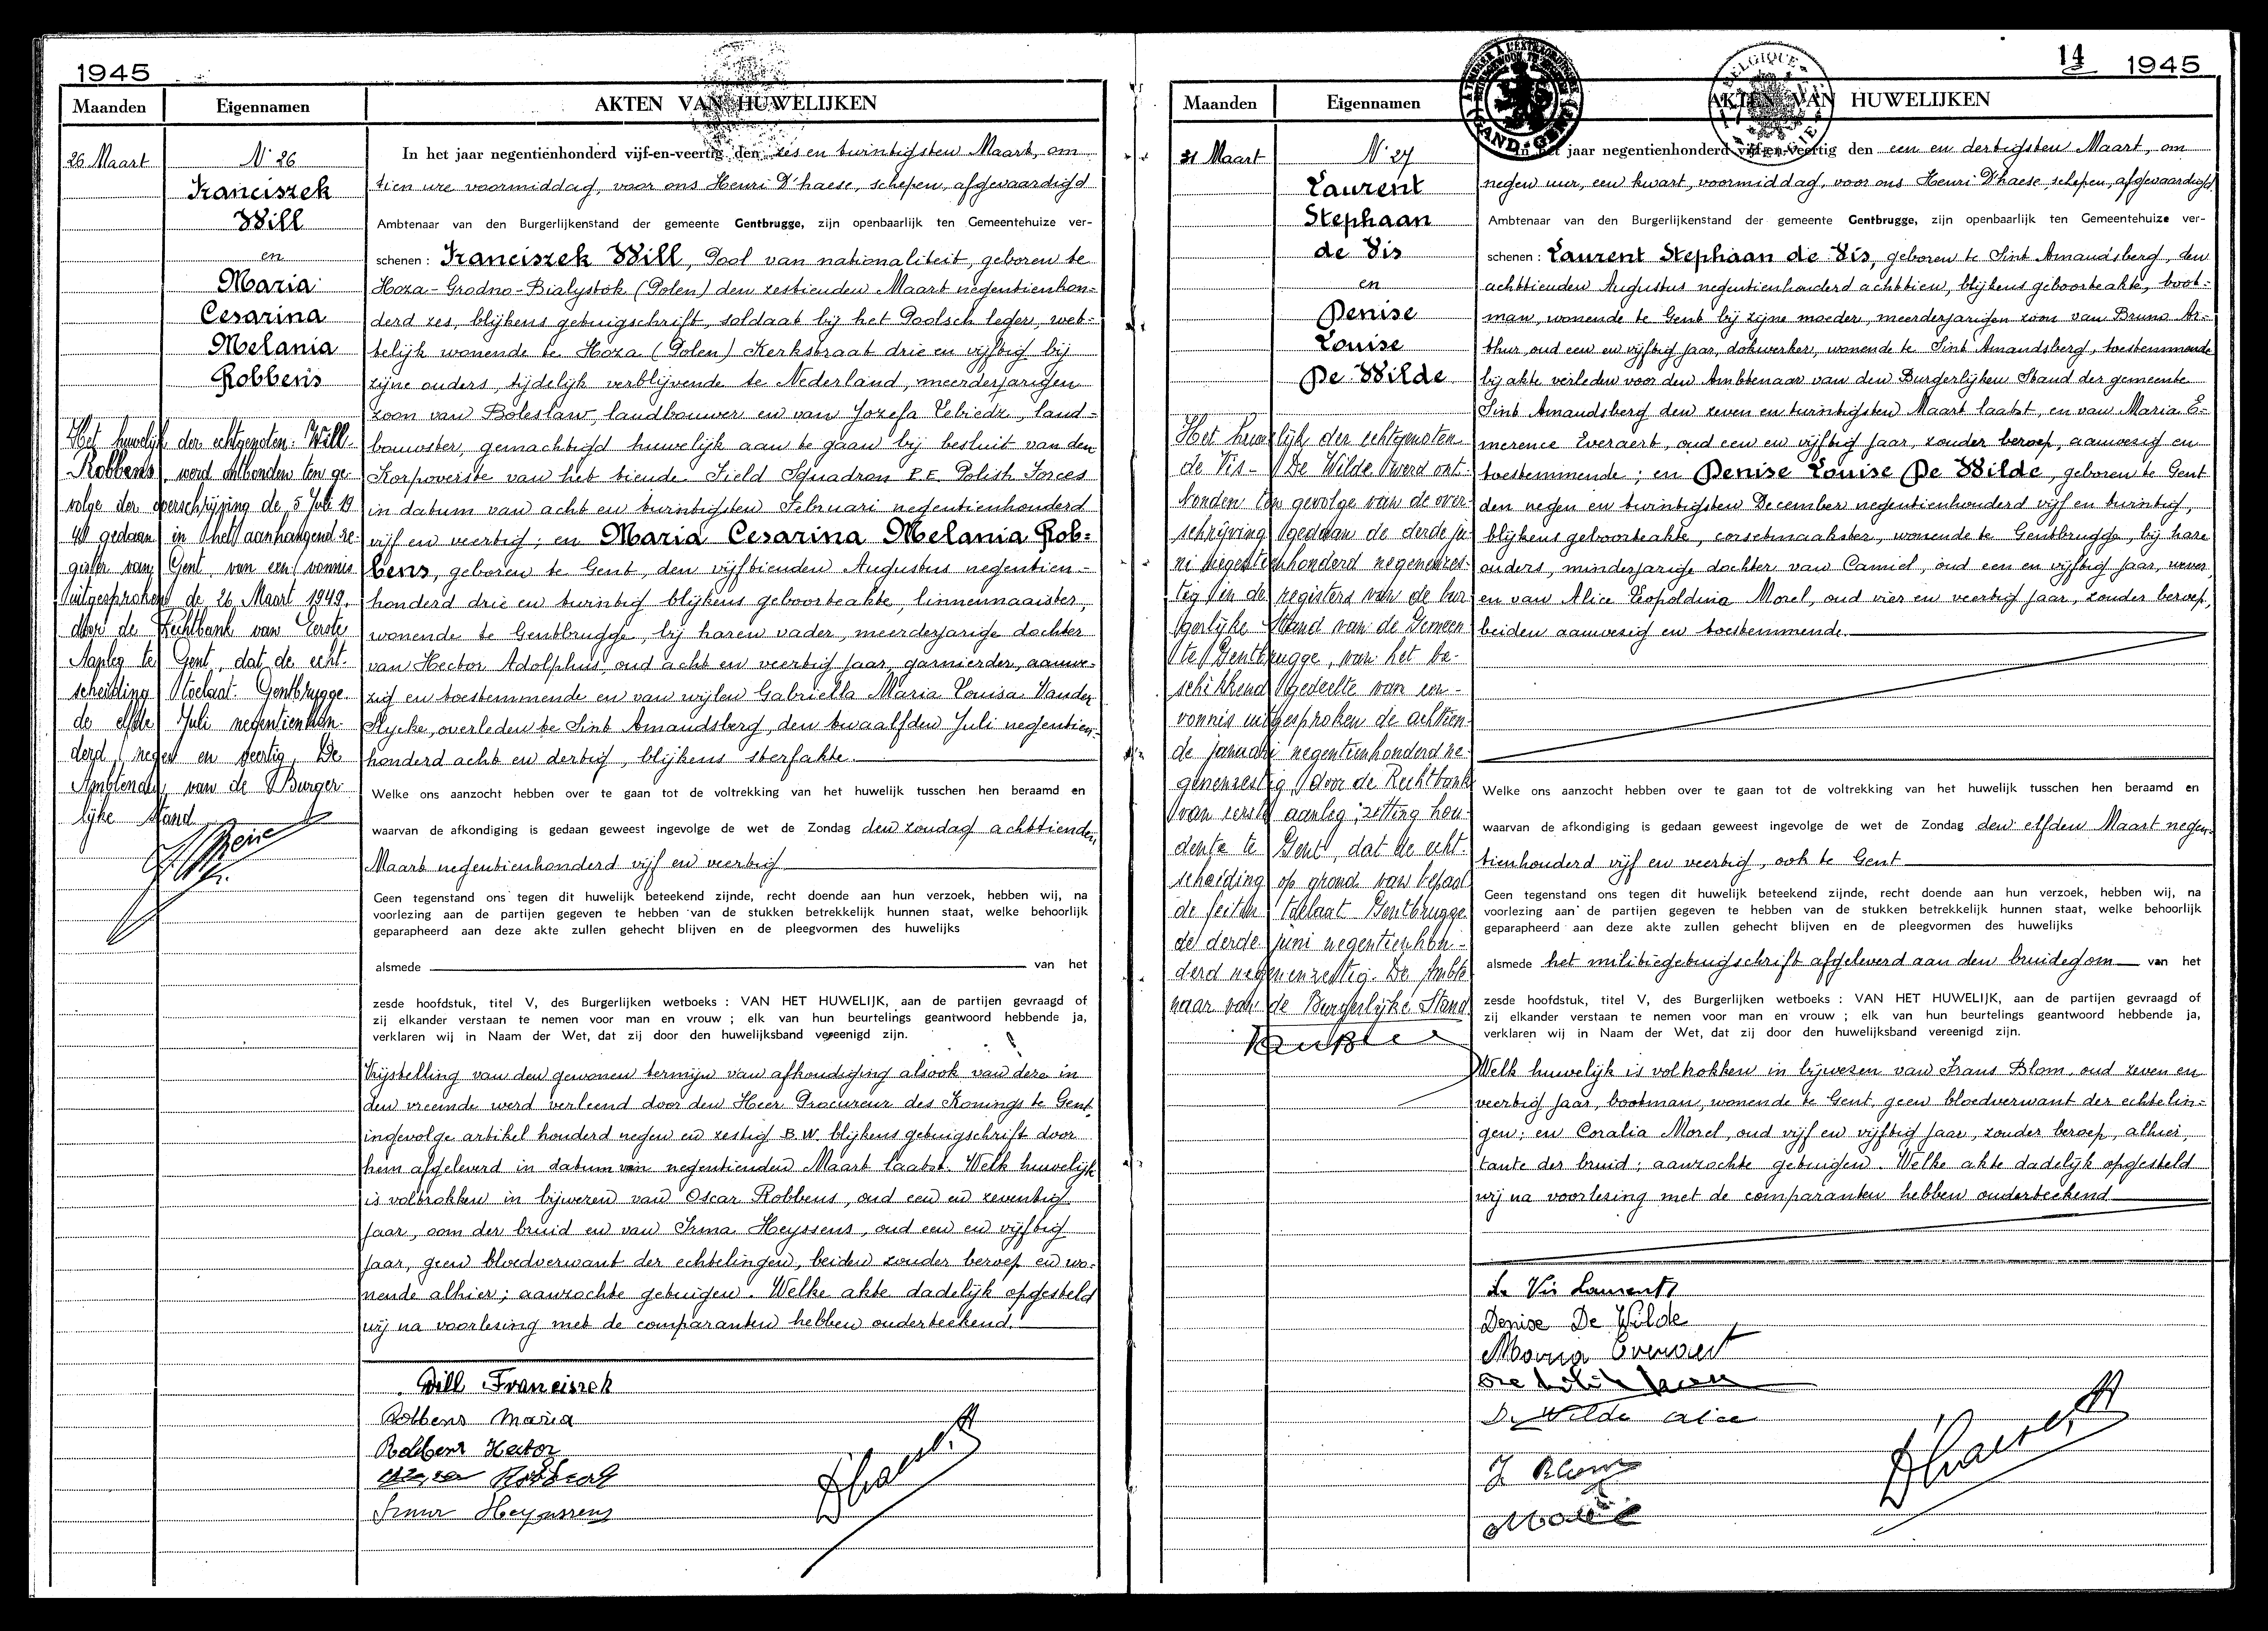 1945
Maanden Eigennamen AKTEN VAN HUWELIJKEN
26 Maart
N 26
Franciszek
Will
en
Maria
Cesarina
Melania
Robbens
Het huwelijk der echtgenoten: Will-
Robbens, werd ontbonden ten ge-
volge der overschrijving de 5 Juli 19
49 gedaan in het aanhangend re-
gister van Gent van een vonnis
uitgesproken de 26 Maart 1949,
door de Rechtbank van Eerste
Aanleg te Gent, dat de echt-
scheiding toelaat. Gentbrugge
de elfde Juli negentienhon-
derd negen en veertig. De
Ambtenaar van de Burger-
lijke Stand
In het jaar negentienhonderd vijf-en-veertig den zes en twintigsten Maart, om
tien ure voormiddag, voor ons Henri D'haese, schepen, afgevaardigd
Ambtenaar van den Burgerlijkenstand der gemeente Gentbrugge, zijn openbaarlijk ten Gemeentehuize ver-
schenen : Franciszek Will, Pool van nationaliteit, geboren te
Hoza-Grodno-Bialystok (Polen) den zestienden Maart negentienhon-
derd zes, blijkens getuigschrift, soldaat bij het Poolsch leger, wet-
telijk wonende te Hoza (Polen) Kerkstraat drie en vijftig bij
zijne ouders, tijdelijk verblijvende te Nederland, meerderjarigen
zoon van Boleslaw, landbouwer en van Jozefa Lebiedz, land-
bouwster, gemachtigd huwelijk aan te gaan bij besluit van den
Korpoverste van het tiende Field Squadron P.E. Polish Forces
in datum van acht en twintigsten Februari negentienhonderd
vijf en veertig; en Maria Cesarina Melania Rob-
bens, geboren te Gent, den vijftienden Augustus negentien-
honderd drie en twintig blijkens geboorteakte, linnennaaister,
wonende te Gentbrugge, bij haren vader, meerderjarige dochter
van Hector Adolphus, oud acht en veertig jaar, garnierder, aanwe-
zig en toestemmende en van wijlen Gabriella Maria Louisa Vander
Slycke, overleden te Sint Amandsberg, den twaalfden Juli negentien-
honderd acht en dertig, blijkens sterfakte.
Welke ons aanzocht hebben over te gaan tot de voltrekking van het huwelijk tusschen hen beraamd en
waarvan de afkondiging is gedaan geweest ingevolge de wet de Zondag den zondag achttienden
Maart negentienhonderd vijf en veertig
Geen tegenstand ons tegen dit huwelijk beteekend zijnde, recht doende aan hun verzoek, hebben wij, na
voorlezing aan de partijen gegeven te hebben van de stukken betrekkelijk hunnen staat, welke behoorlijk
geparapheerd aan deze akte zullen gehecht blijven en de pleegvormen des huwelijks
alsmede van het
zesde hoofdstuk, titel V, des Burgerlijken wetboeks : VAN HET HUWELIJK, aan de partijen gevraagd of
zij elkander verstaan te nemen voor man en vrouw ; elk van hun beurtelings geantwoord hebbende ja,
verklaren wij in Naam der Wet, dat zij door den huwelijksband vereenigd zijn.
Vrijstelling van den gewonen termijn van afkondiging alsook van deze in
den vreemde werd verleend door den Heer Procureur des Konings te Gent,
ingevolge artikel honderd negen en zestig B.W. blijkens getuigschrift door
hem afgeleverd in datum van negentienden Maart laatst. Welk huwelijk
is voltrokken in bijwezen van Oscar Robbens, oud een en zeventig
jaar, oom der bruid en van Irma Heyssens, oud een en vijftig
jaar, geen bloedverwant der echtelingen, beiden zonder beroep en wo-
nende alhier; aanzochte getuigen. Welke akte dadelijk opgesteld
wij na voorlezing met de comparanten hebben onderteekend.
Will Franciszek
Robbens Maria
Robbens Hector
Robbens
Irma Heyssens
D'haese H
14 1945
Maanden Eigennamen AKTEN VAN HUWELIJKEN
GAND-GENT
BELGIQUE
31 Maart
N 27
Laurent
Stephaan
de Vis
en
Denise
Louise
De Wilde
Het huwelijk der echtgenoten
de Vis - De Wilde werd ont-
bonden ten gevolge van de over-
schrijving gedaan de derde ju-
ni negentienhonderd negenenzes-
tig in de registers van de bur
gerlijke Stand van de Gemeen
te Gentbrugge, van het be-
schikkend gedeelte van een
vonnis uitgesproken de achttien-
de januari negentienhonderd ne-
genenzestig door de Rechtbank
van eerste aanleg zitting hou-
dente te Gent, dat de echt-
scheiding op grond van bepaal
de feiten toelaat Gentbrugge
de derde juni negentienhon-
derd negenenzestig. De Ambte
naar van de Burgerlijke Stand
In het jaar negentienhonderd vijf-en-veertig den een en dertigsten Maart, om
negen uur, een kwart, voormiddag, voor ons Henri D'haese, schepen, afgevaardigd
Ambtenaar van den Burgerlijkenstand der gemeente Gentbrugge, zijn openbaarlijk ten Gemeentehuize ver-
schenen : Laurent Stephaan de Vis, geboren te Sint Amandsberg, den
achttienden Augustus negentienhonderd achttien, blijkens geboorteakte, boot-
man, wonende te Gent bij zijne moeder, meerderjarigen zoon van Bruno Ar-
thur, oud een en vijftig jaar, dokwerker, wonende te Sint Amandsberg, toestemmende
bij akte verleden voor den Ambtenaar van den Burgerlijken Stand der gemeente
Sint Amandsberg den zeven en twintigsten Maart laatst, en van Maria E-
merence Everaert, oud een en vijftig jaar, zonder beroep, aanwezig en
toestemmende; en Denise Louise De Wilde, geboren te Gent
den negen en twintigsten December negentienhonderd vijf en twintig,
blijkens geboorteakte, corsetmaakster, wonende te Gentbrugge, bij hare
ouders, minderjarige dochter van Camiel, oud een en vijftig jaar, wever,
en van Alice Leopoldina Morel, oud vier en veertig jaar, zonder beroep,
beiden aanwezig en toestemmende.
Welke ons aanzocht hebben over te gaan tot de voltrekking van het huwelijk tusschen hen beraamd en
waarvan de afkondiging is gedaan geweest ingevolge de wet de Zondag den elfden Maart negen-
tienhonderd vijf en veertig, ook te Gent
Geen tegenstand ons tegen dit huwelijk beteekend zijnde, recht doende aan hun verzoek, hebben wij, na
voorlezing aan de partijen gegeven te hebben van de stukken betrekkelijk hunnen staat, welke behoorlijk
geparapheerd aan deze akte zullen gehecht blijven en de pleegvormen des huwelijks
alsmede het militiegetuigschrift afgeleverd aan den bruidegom van het
zesde hoofdstuk, titel V, des Burgerlijken wetboeks : VAN HET HUWELIJK, aan de partijen gevraagd of
zij elkander verstaan te nemen voor man en vrouw ; elk van hun beurtelings geantwoord hebbende ja,
verklaren wij in Naam der Wet, dat zij door den huwelijksband vereenigd zijn.
Welk huwelijk is voltrokken in bijwezen van Frans Blom, oud zeven en
veertig jaar, bootman, wonende te Gent, geen bloedverwant der echtelin-
gen; en Coralia Morel, oud vijf en vijftig jaar, zonder beroep, alhier,
tante der bruid; aanzochte getuigen. Welke akte dadelijk opgesteld
wij na voorlezing met de comparanten hebben onderteekend
De Vis Laurent
Denise De Wilde
Maria Everaert
De Wilde Alice
F Blom
Morel
D'haese H